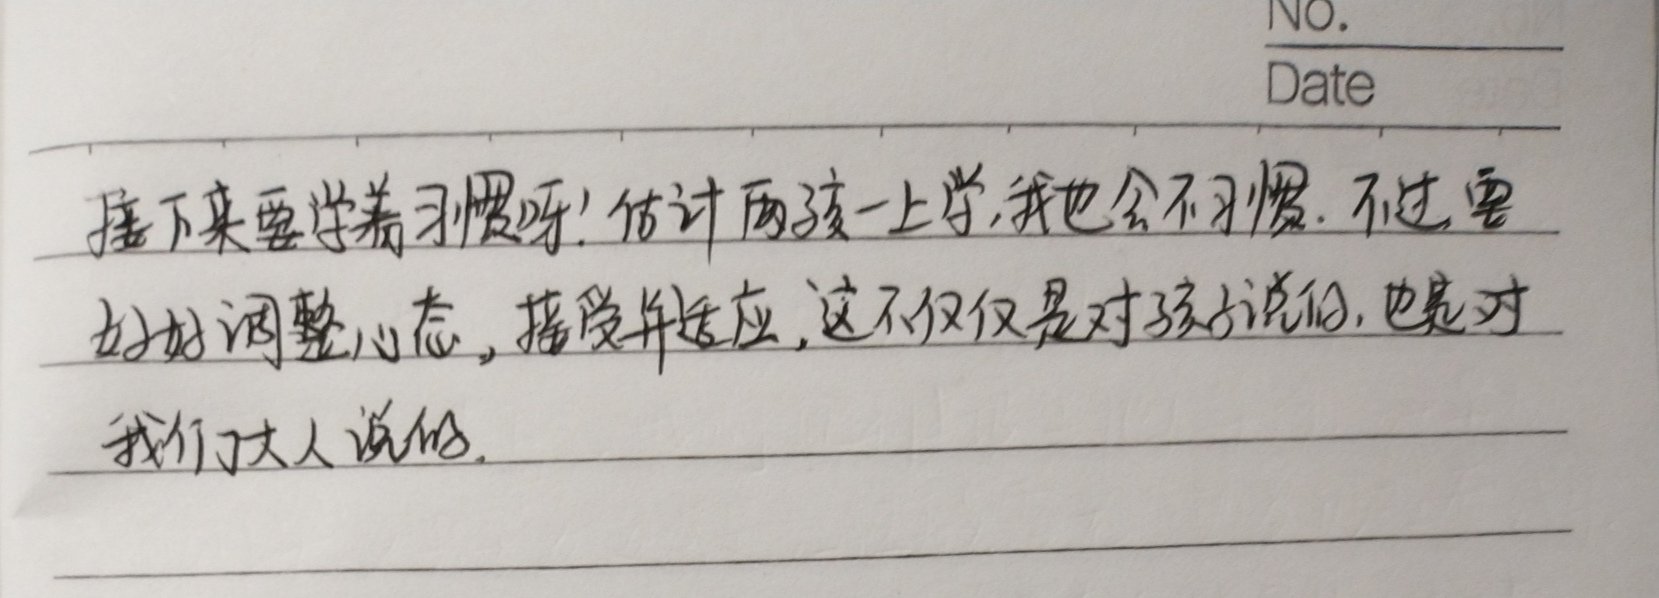 No.
Date
接下来要学着习惯呀!估计两孩一上学,我也会不习惯.不过,要
好好调整心态,接受并适应,这不仅仅是对孩子说的,也是对
我们大人说的.